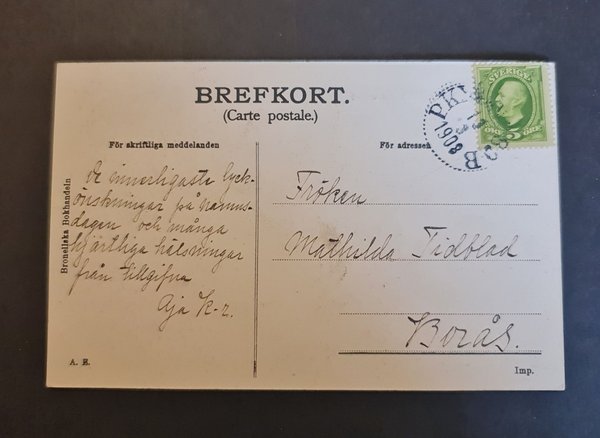 BREFKORT.
(Carte postale.)
För skriftliga meddelanden
För adressen
De innerligaste lyck-
önskningar på namns-
dagen och många
hjärtliga hälsningar
från tillgifna
Aja K-r.
Fröken
Mathilda Tidblad
Borås.
Bronellska Bokhandeln
A. E.
Imp.
SVERIGE
5
ÖRE
PKXP
1908